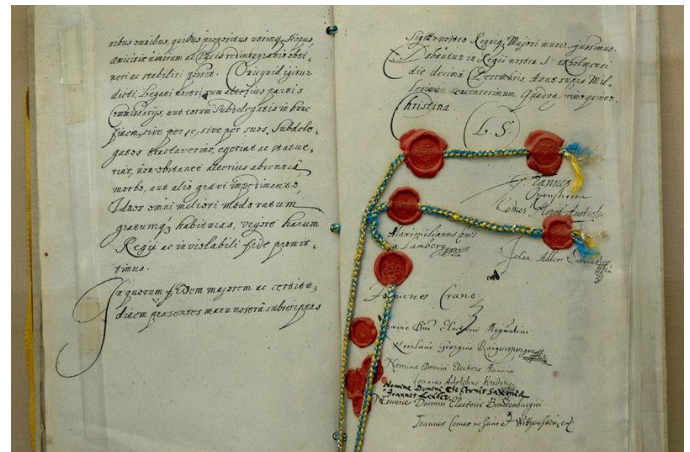 nibus omnibus, quibus propositus utrinq; scopus,
Amicitiæ nimirum ac Pacis redintegratio obti-
neri ac stabiliri possit. Quicquid igitur
dicti Legati nostri cum alterius partis
Commissarijs, aut eorum Subdelegatis in hunc
finem, sive per se, sive per suos Subdele-
gatos tractaverint, egerint ac statue-
rint, non obstante alterius absentiâ
morbo, aut alio gravi impedimento,
Id nos omni meliori modo ratum
gratumq; habituras, vigore harum
Regiè ac inviolabili fide promit-
timus.
In quorum fidem majorem ac certitu-
dinem præsentes manu nostrâ subscriptas
Sigillo nostro Regioq; Majori muniri jussimus.
Dabantur in Regiâ nostrâ Stockholmensi
die decimâ Decembris Anno supra Mil-
lesimum sexcentesimum Quadragesimo quinto.
Christina.
L. S.
Johannes
Oxenstierna
Comes
Maximilianus Comes
a Lamberg
Johan Adler Salvius
Johannes Crane
Nomine Dni Electoris Moguntini
Nicolaus Georgius Raigersperger
Nomine Domini Electoris Bavari
Joannes Adolphus Krebs
Nomine Domini Electoris Saxoniæ
Joannes Leuber
Nomine Domini Electoris Brandenburgici
Joannes Comes in Sain et Wittgenstein